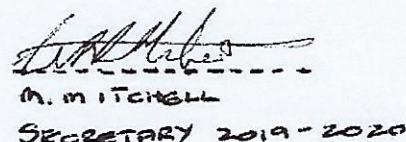 M. MITCHELL
SECRETARY 2019-2020